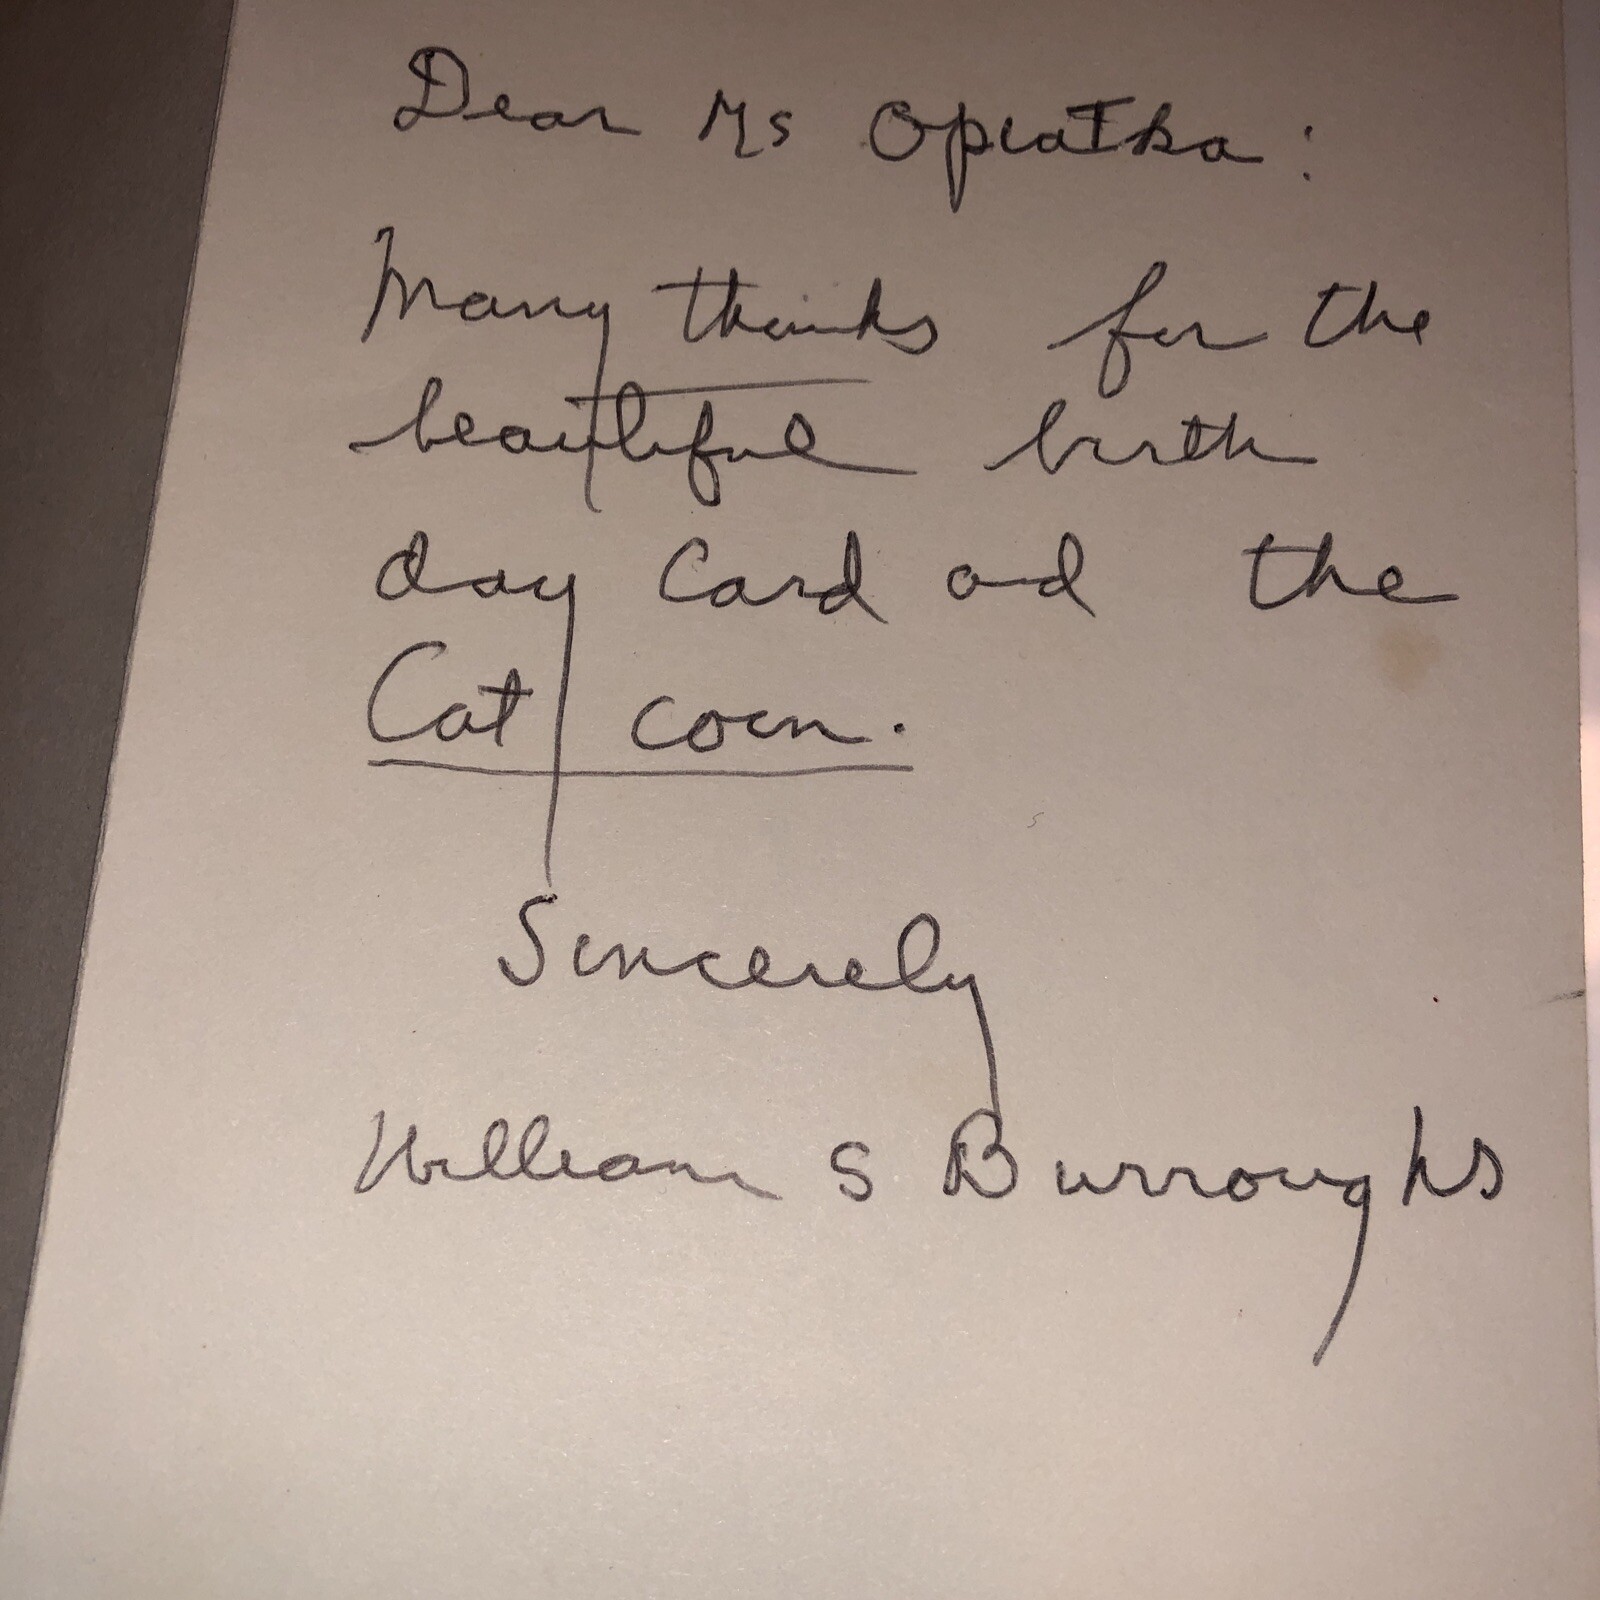 Dear Ms Opiatka:
Many thanks for the
beautiful birth
day Card and the
Cat coin.
Sincerely
William S Burroughs